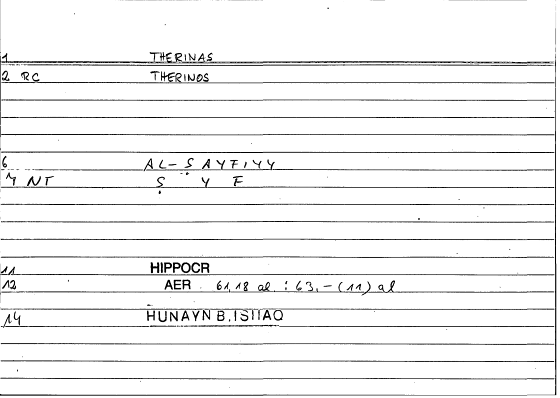 1 THERINAS
2 RC THERINOS
6 AL-ṢAYFIYY
7 NT Ṣ Y F
11 HIPPOCR
12 AER 61,18 al. : 63,-(11) al
14 HUNAYN B. ISHAQ